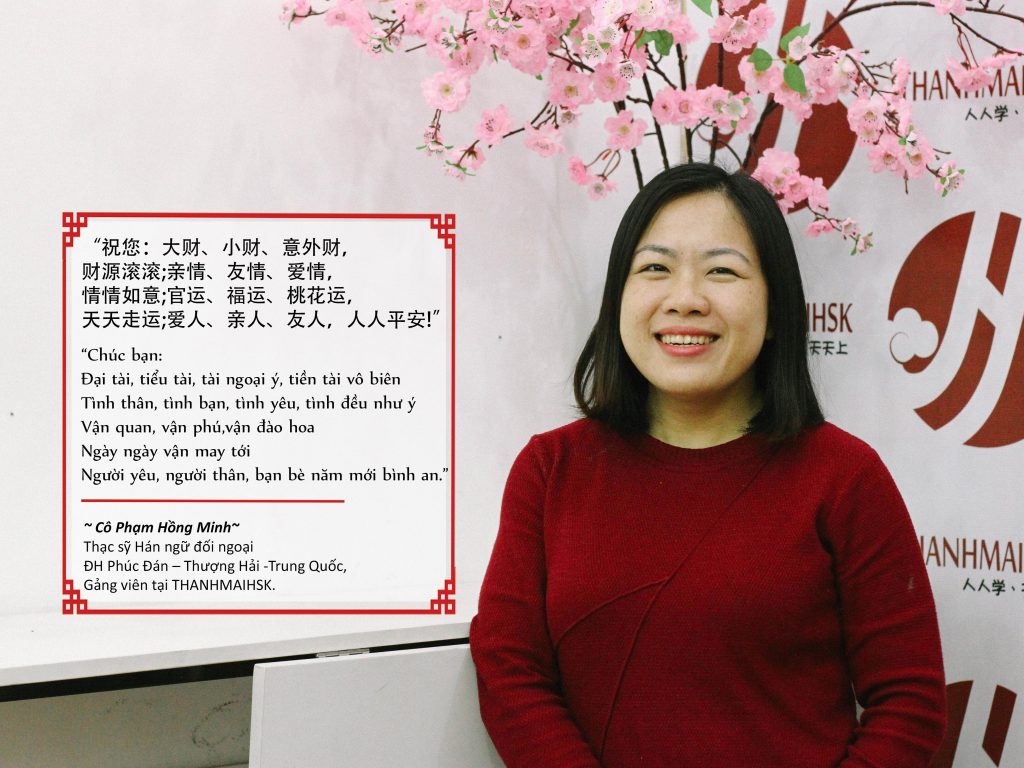 “祝您：大财、小财、意外财，
财源滚滚;亲情、友情、爱情，
情情如意;官运、福运、桃花运，
天天走运;爱人、亲人、友人，人人平安!”
“Chúc bạn:
Đại tài, tiểu tài, tài ngoại ý, tiền tài vô biên
Tình thân, tình bạn, tình yêu, tình đều như ý
Vận quan, vận phú,vận đào hoa
Ngày ngày vận may tới
Người yêu, người thân, bạn bè năm mới bình an.”
~ Cô Phạm Hồng Minh~
Thạc sỹ Hán ngữ đối ngoại
ĐH Phúc Đán – Thượng Hải -Trung Quốc,
Gảng viên tại THANHMAIHSK.
THANHMAI
人人学、
IHSK
天天上
HANHMAI
人人学、